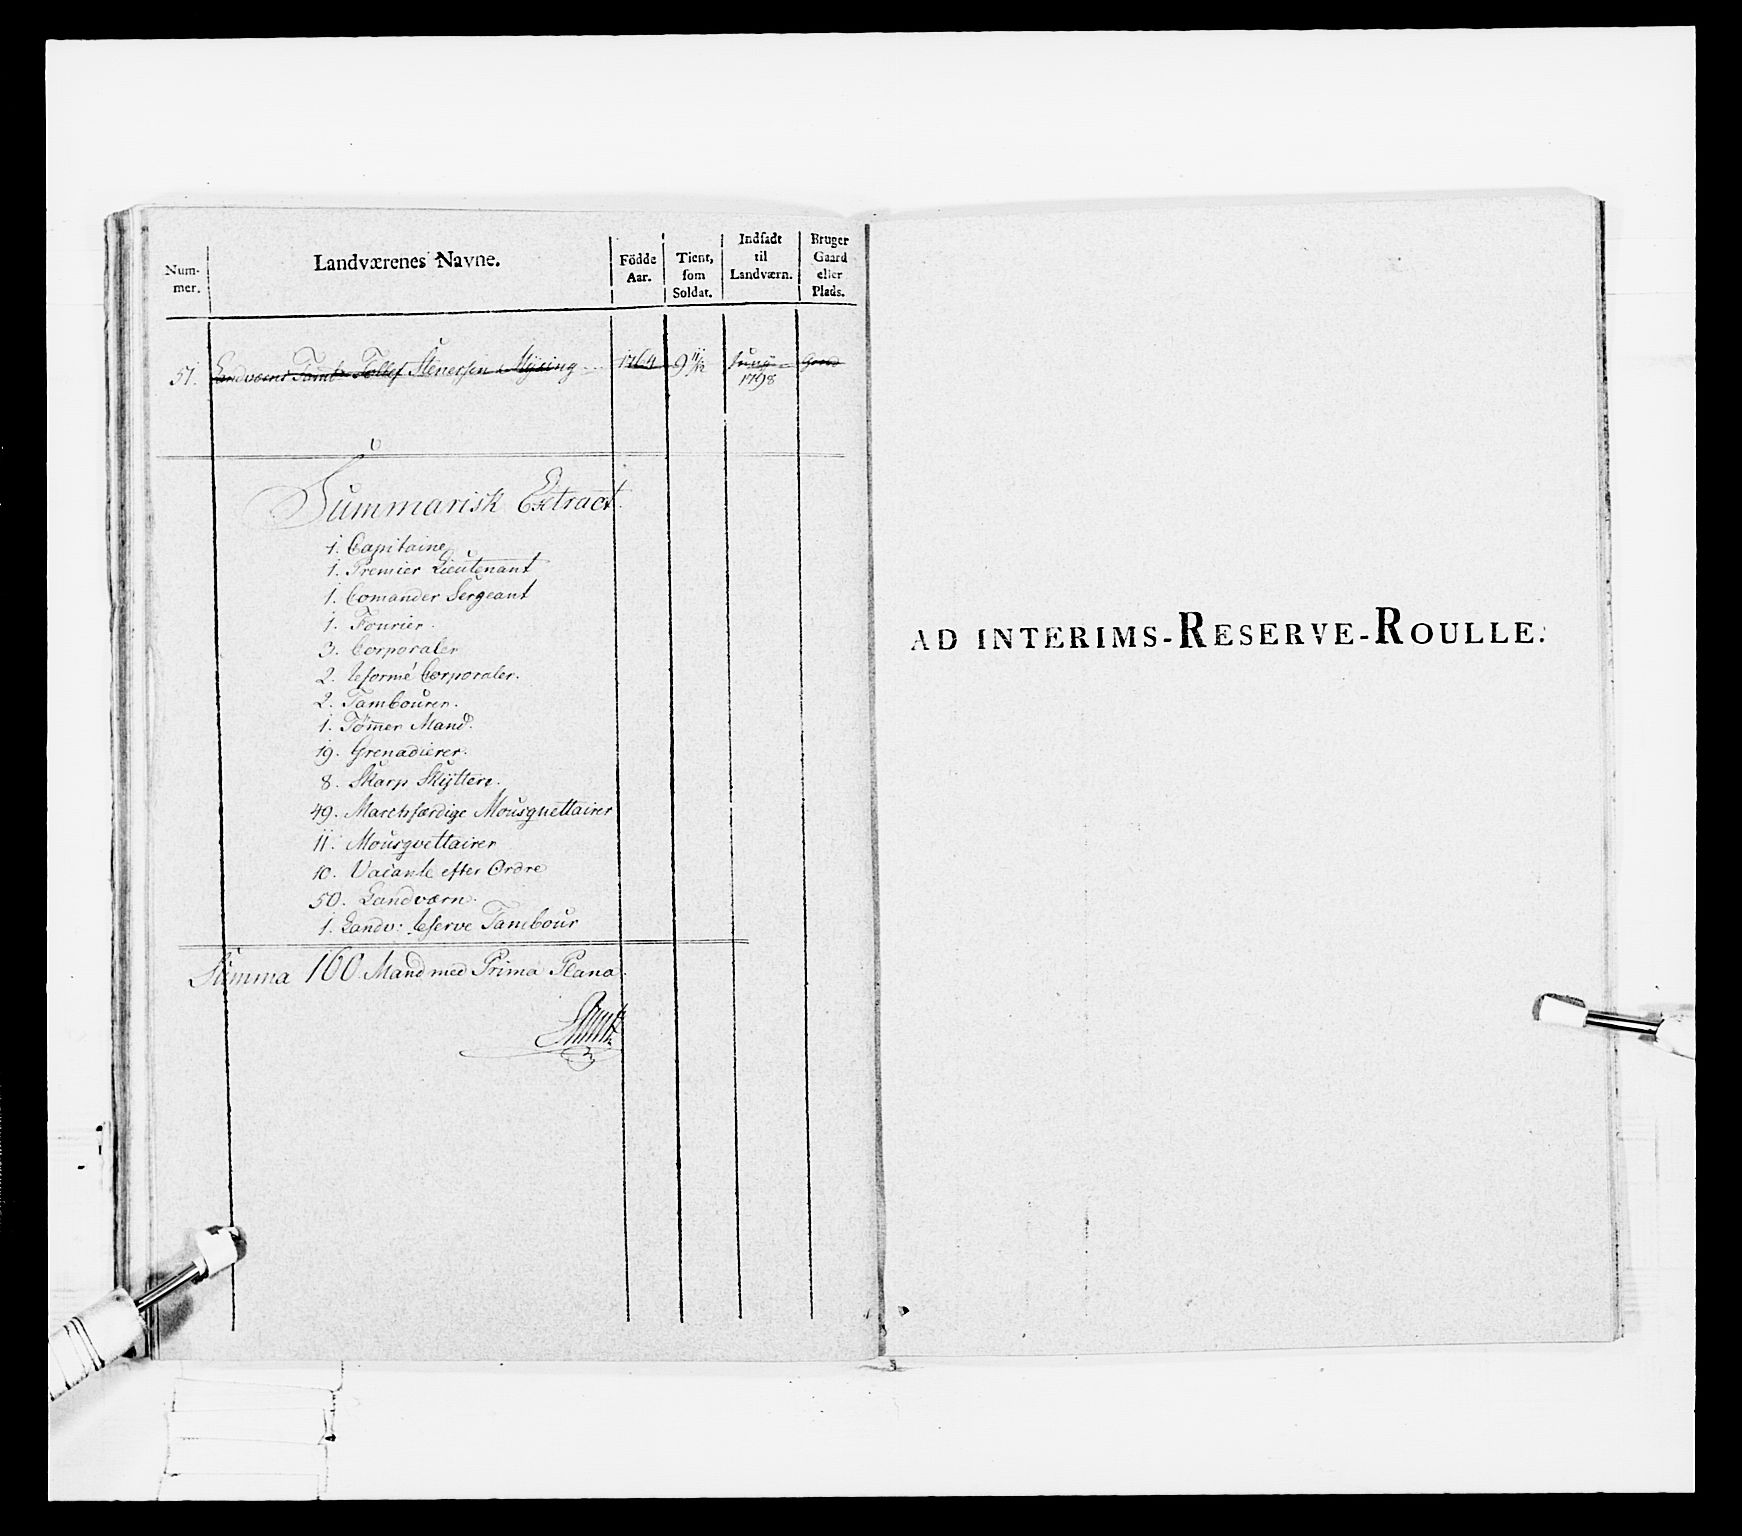 Num-
mer.
Landværenes Navne.
Födde
Aar.
Tient,
som
Soldat.
Indsadt
til
Landværn.
Bruger
Gaard
eller
Plads.
51. Landværns Tamb: Tollef Stenersen Mÿsing 1764 9 11/12 Junÿ
1798
Summarisk Extract.
1. Capitaine
1. Premier Lieutenant
1. Comander Sergeant
1. Fourier.
3. Corporaler
2. Reformé Corporaler.
2. Tambourer.
1. Tømer Mand.
19. Grenadierer.
8. Skarp Skÿttere.
49. Marchfærdige Mousquettairer
11. Mousqvettairer
10. Vacante efter Ordre
50. Landværn.
1. Landv: Reserve Tambour
Summa 160 Mand med Prima Plana.
AD INTERIMS-RESERVE-ROULLE.